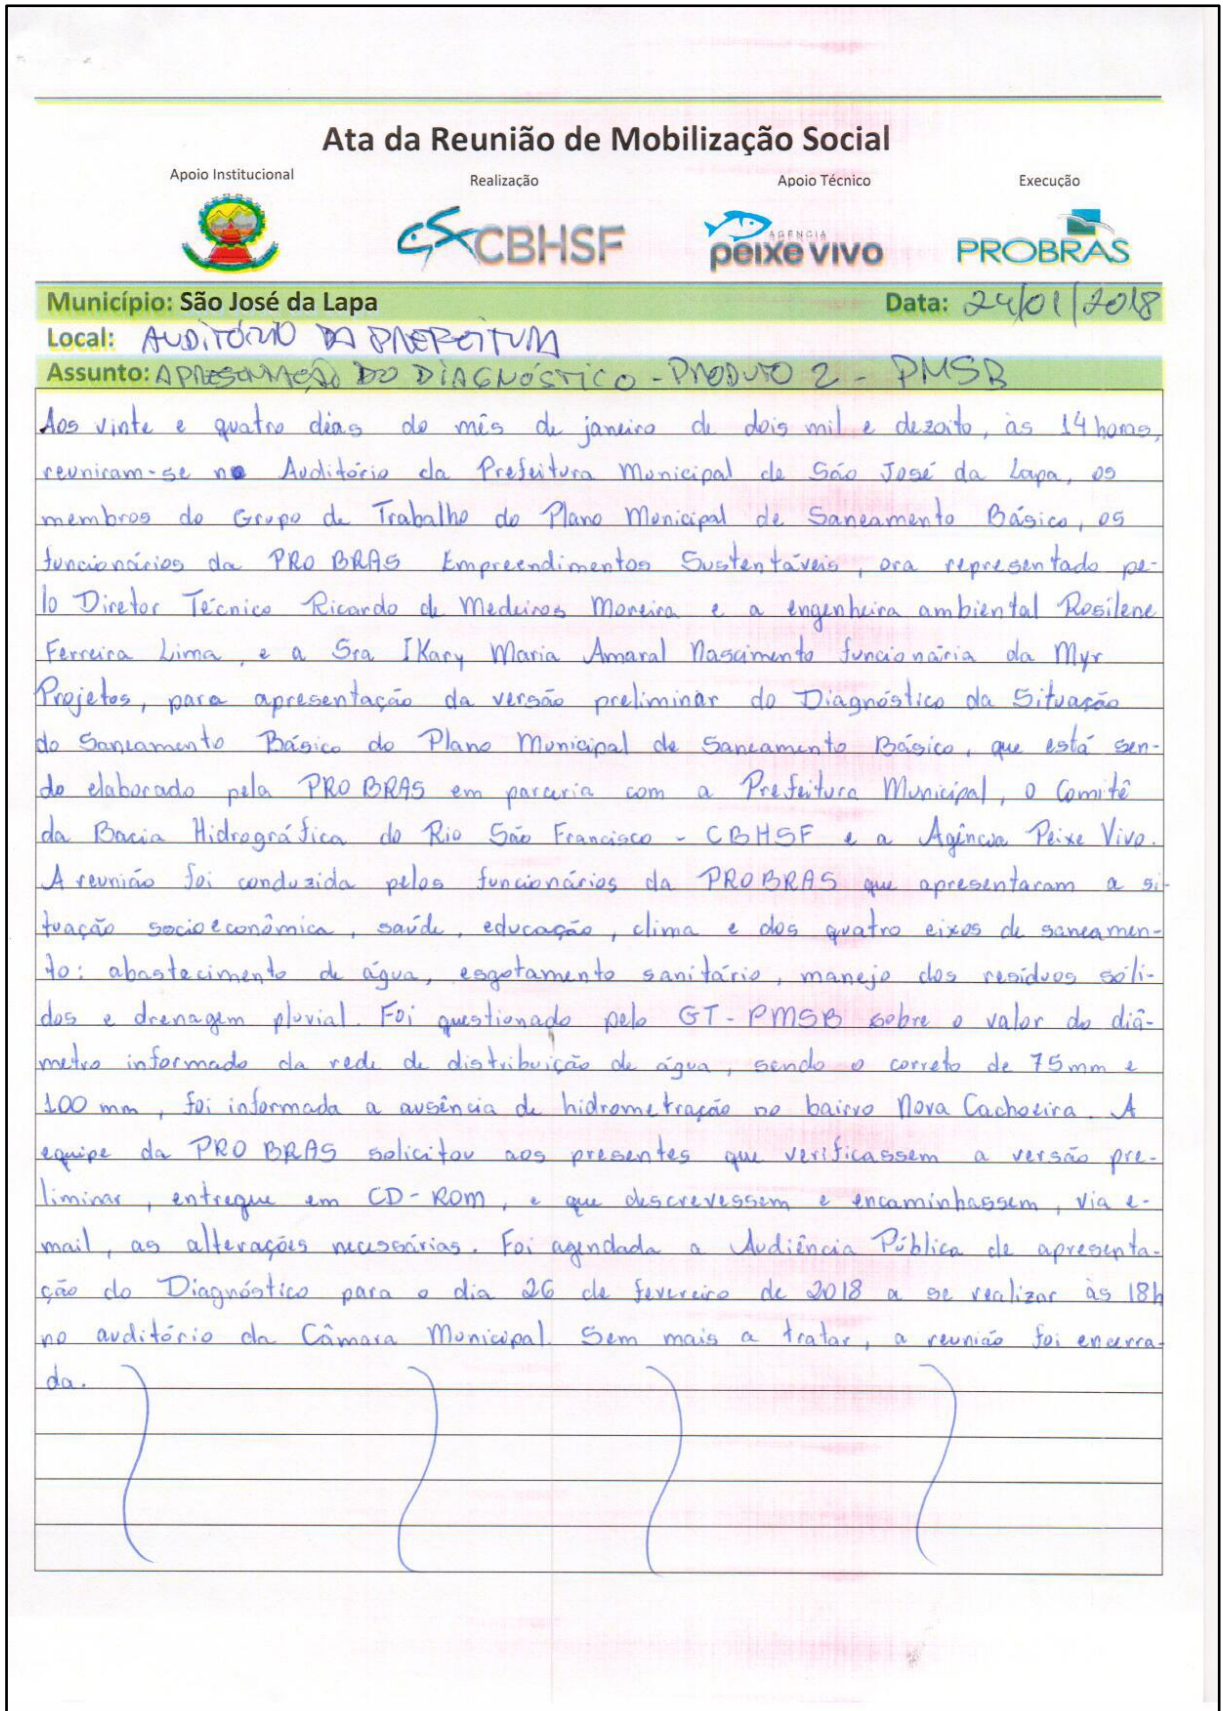 Ata da Reunião de Mobilização Social
Apoio Institucional Realização Apoio Técnico Execução
CBHSF AGÊNCIA peixe vivo PROBRAS
Município: São José da Lapa Data: 24/01/2018
Local: AUDITÓRIO DA PREFEITURA
Assunto: APRESENTAÇÃO DO DIAGNÓSTICO - PRODUTO 2 - PMSB
Aos vinte e quatro dias do mês de janeiro de dois mil e dezoito, às 14 horas,
reuniram-se no Auditório da Prefeitura Municipal de São José da Lapa, os
membros do Grupo de Trabalho do Plano Municipal de Saneamento Básico, os
funcionários da PRO BRAS Empreendimentos Sustentáveis, ora representado pe-
lo Diretor Técnico Ricardo de Medeiros Moreira e a engenheira ambiental Rosilene
Ferreira Lima, e a Sra IKary Maria Amaral Nascimento funcionária da Myr
Projetos, para apresentação da versão preliminar do Diagnóstico da Situação
do Saneamento Básico do Plano Municipal de Saneamento Básico, que está sen-
do elaborado pela PRO BRAS em parceria com a Prefeitura Municipal, o Comitê
da Bacia Hidrográfica do Rio São Francisco - CBHSF e a Agência Peixe Vivo.
A reunião foi conduzida pelos funcionários da PROBRAS que apresentaram a si-
tuação socioeconômica, saúde, educação, clima e dos quatro eixos de saneamen-
to: abastecimento de água, esgotamento sanitário, manejo dos resíduos sóli-
dos e drenagem pluvial. Foi questionado pelo GT-PMSB sobre o valor do diâ-
metro informado da rede de distribuição de água, sendo o correto de 75mm e
100 mm, foi informada a ausência de hidrometração no bairro Nova Cachoeira. A
equipe da PRO BRAS solicitou aos presentes que verificassem a versão pre-
liminar, entregue em CD-ROM, e que descrevessem e encaminhassem, via e-
mail, as alterações necessárias. Foi agendada a Audiência Pública de apresenta-
ção do Diagnóstico para o dia 26 de fevereiro de 2018 a se realizar às 18h
no auditório da Câmara Municipal. Sem mais a tratar, a reunião foi encerra-
da.